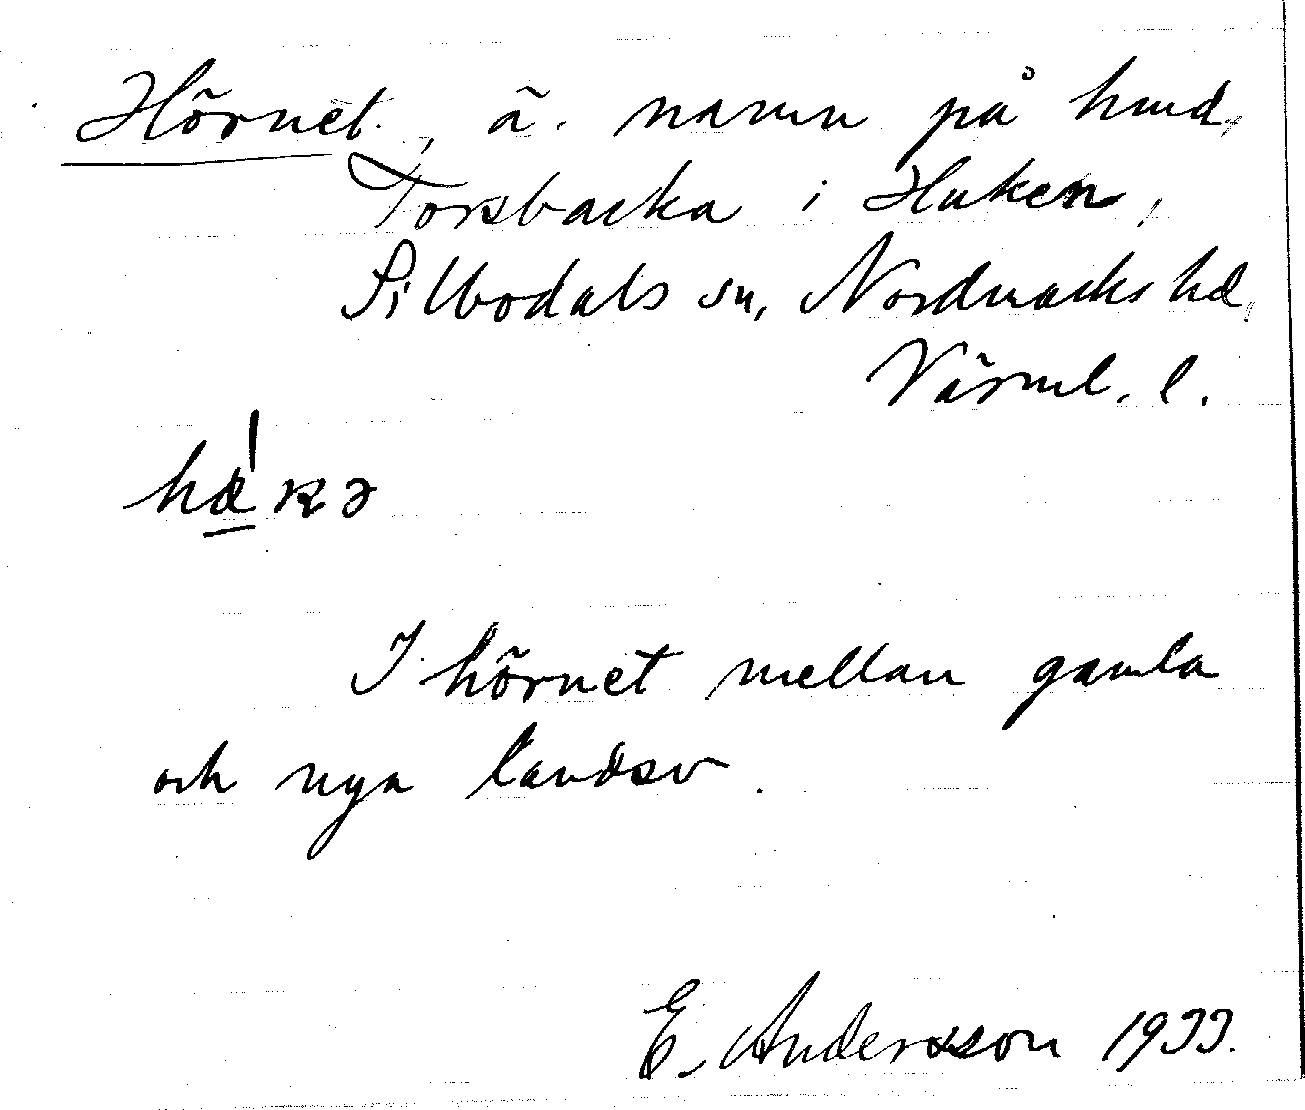 Hörnet, ä. namn på hmd,
Torsbacka i Huken,
Silbodals sn, Nordmarks hd,
Värml. l.
I hörnet mellan gamla
och nya landsv.
E. Andersson 1933.